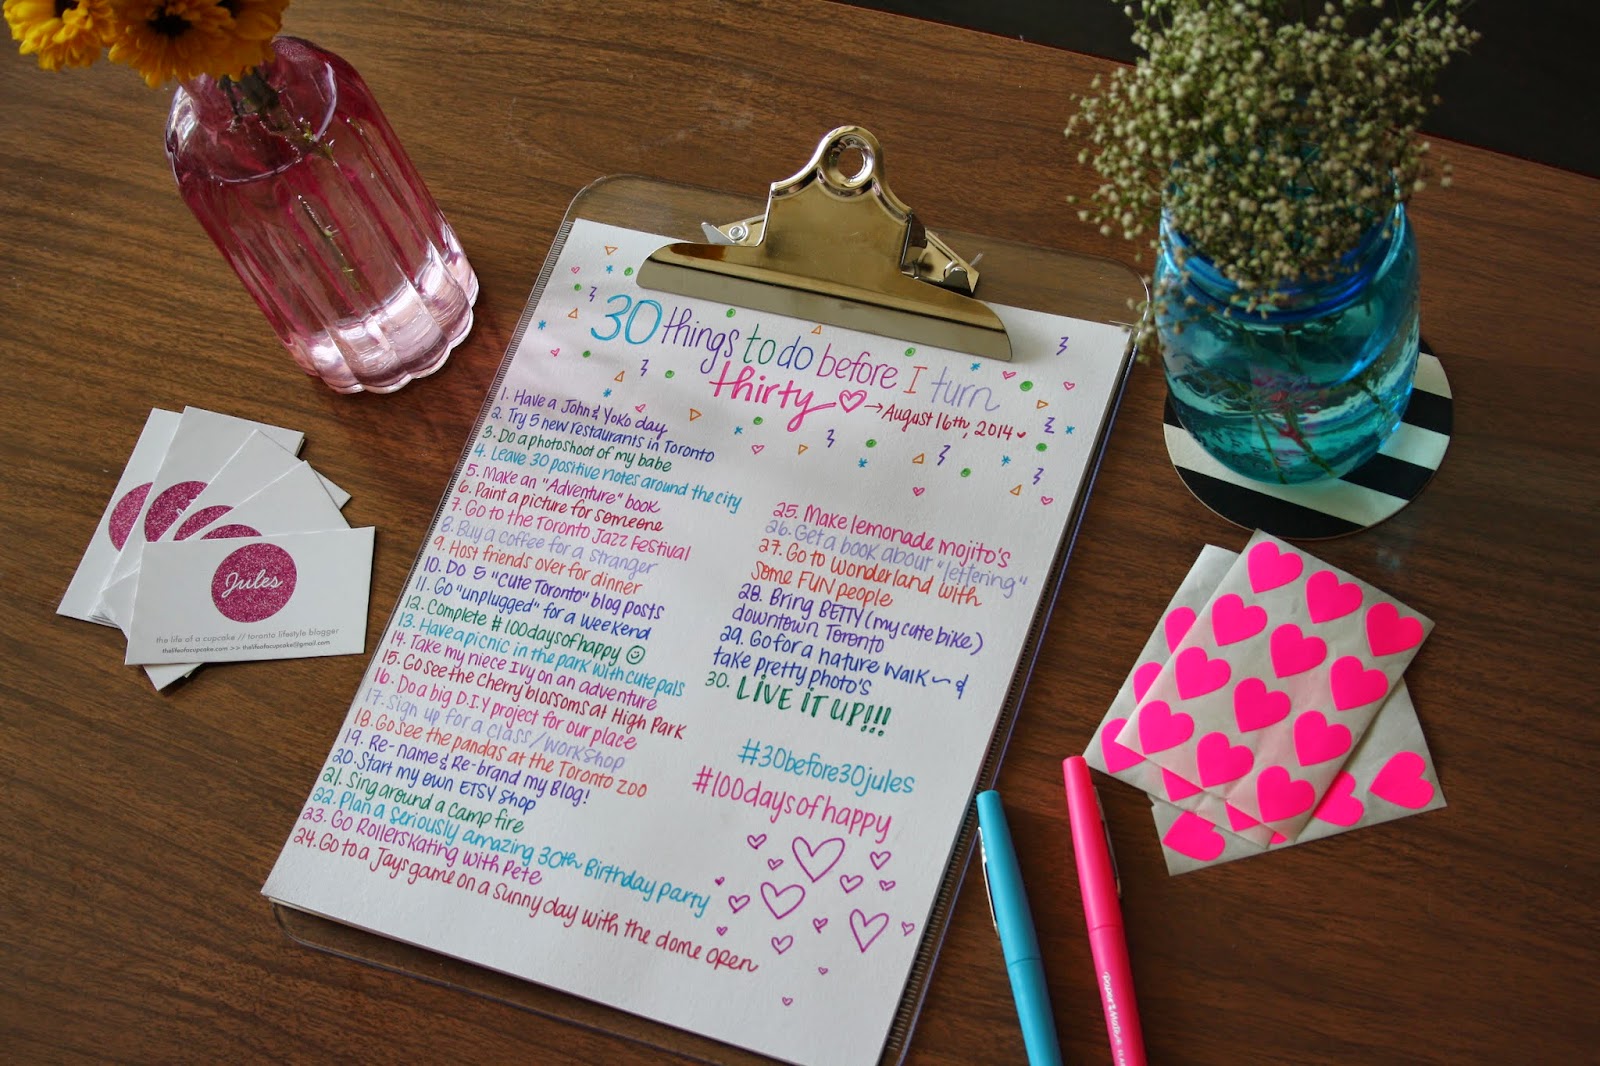 30 things to do before I turn
thirty → August 16th, 2014
1. Have a John & Yoko day
2. Try 5 new restaurants in Toronto
3. Do a photoshoot of my babe
4. Leave 30 positive notes around the city
5. Make an "Adventure" book
6. Paint a picture for someone
7. Go to the Toronto Jazz Festival
8. Buy a coffee for a stranger
9. Host friends over for dinner
10. Do 5 "cute Toronto" blog posts
11. Go "unplugged" for a weekend
12. Complete #100daysofhappy ☺
13. Have a picnic in the park with cute pals
14. Take my niece Ivy on an adventure
15. Go see the cherry blossoms at High Park
16. Do a big D.I.Y project for our place
17. Sign up for a class/workshop
18. Go see the pandas at the Toronto Zoo
19. Re-name & Re-brand my Blog!
20. Start my own ETSY shop
21. Sing around a campfire
22. Plan a seriously amazing 30th Birthday party
23. Go Rollerskating with Pete
24. Go to a Jays game on a sunny day with the dome open
25. Make lemonade mojito's
26. Get a book about "lettering"
27. Go to wonderland with
some FUN people
28. Bring BETTY (my cute bike)
downtown Toronto
29. Go for a nature walk ~ &
take pretty photo's
30. LIVE IT UP!!!
#30before30jules
#100daysofhappy
Jules
the life of a cupcake // toronto lifestyle blogger
thelifeofacupcake.com >> thelifeofacupcake@gmail.com
Paper Mate